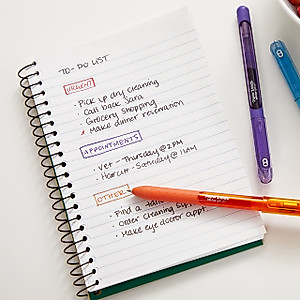 TO-DO LIST
URGENT
• Pick up dry cleaning
• Call back Sara
• Grocery Shopping
• Make dinner reservation
APPOINTMENTS
• Vet - Thursday @ 2PM
• Haircut - Saturday @ 11AM
OTHER
• Find a
• Order Cleaning
• Make eye doctor appt.
8
8